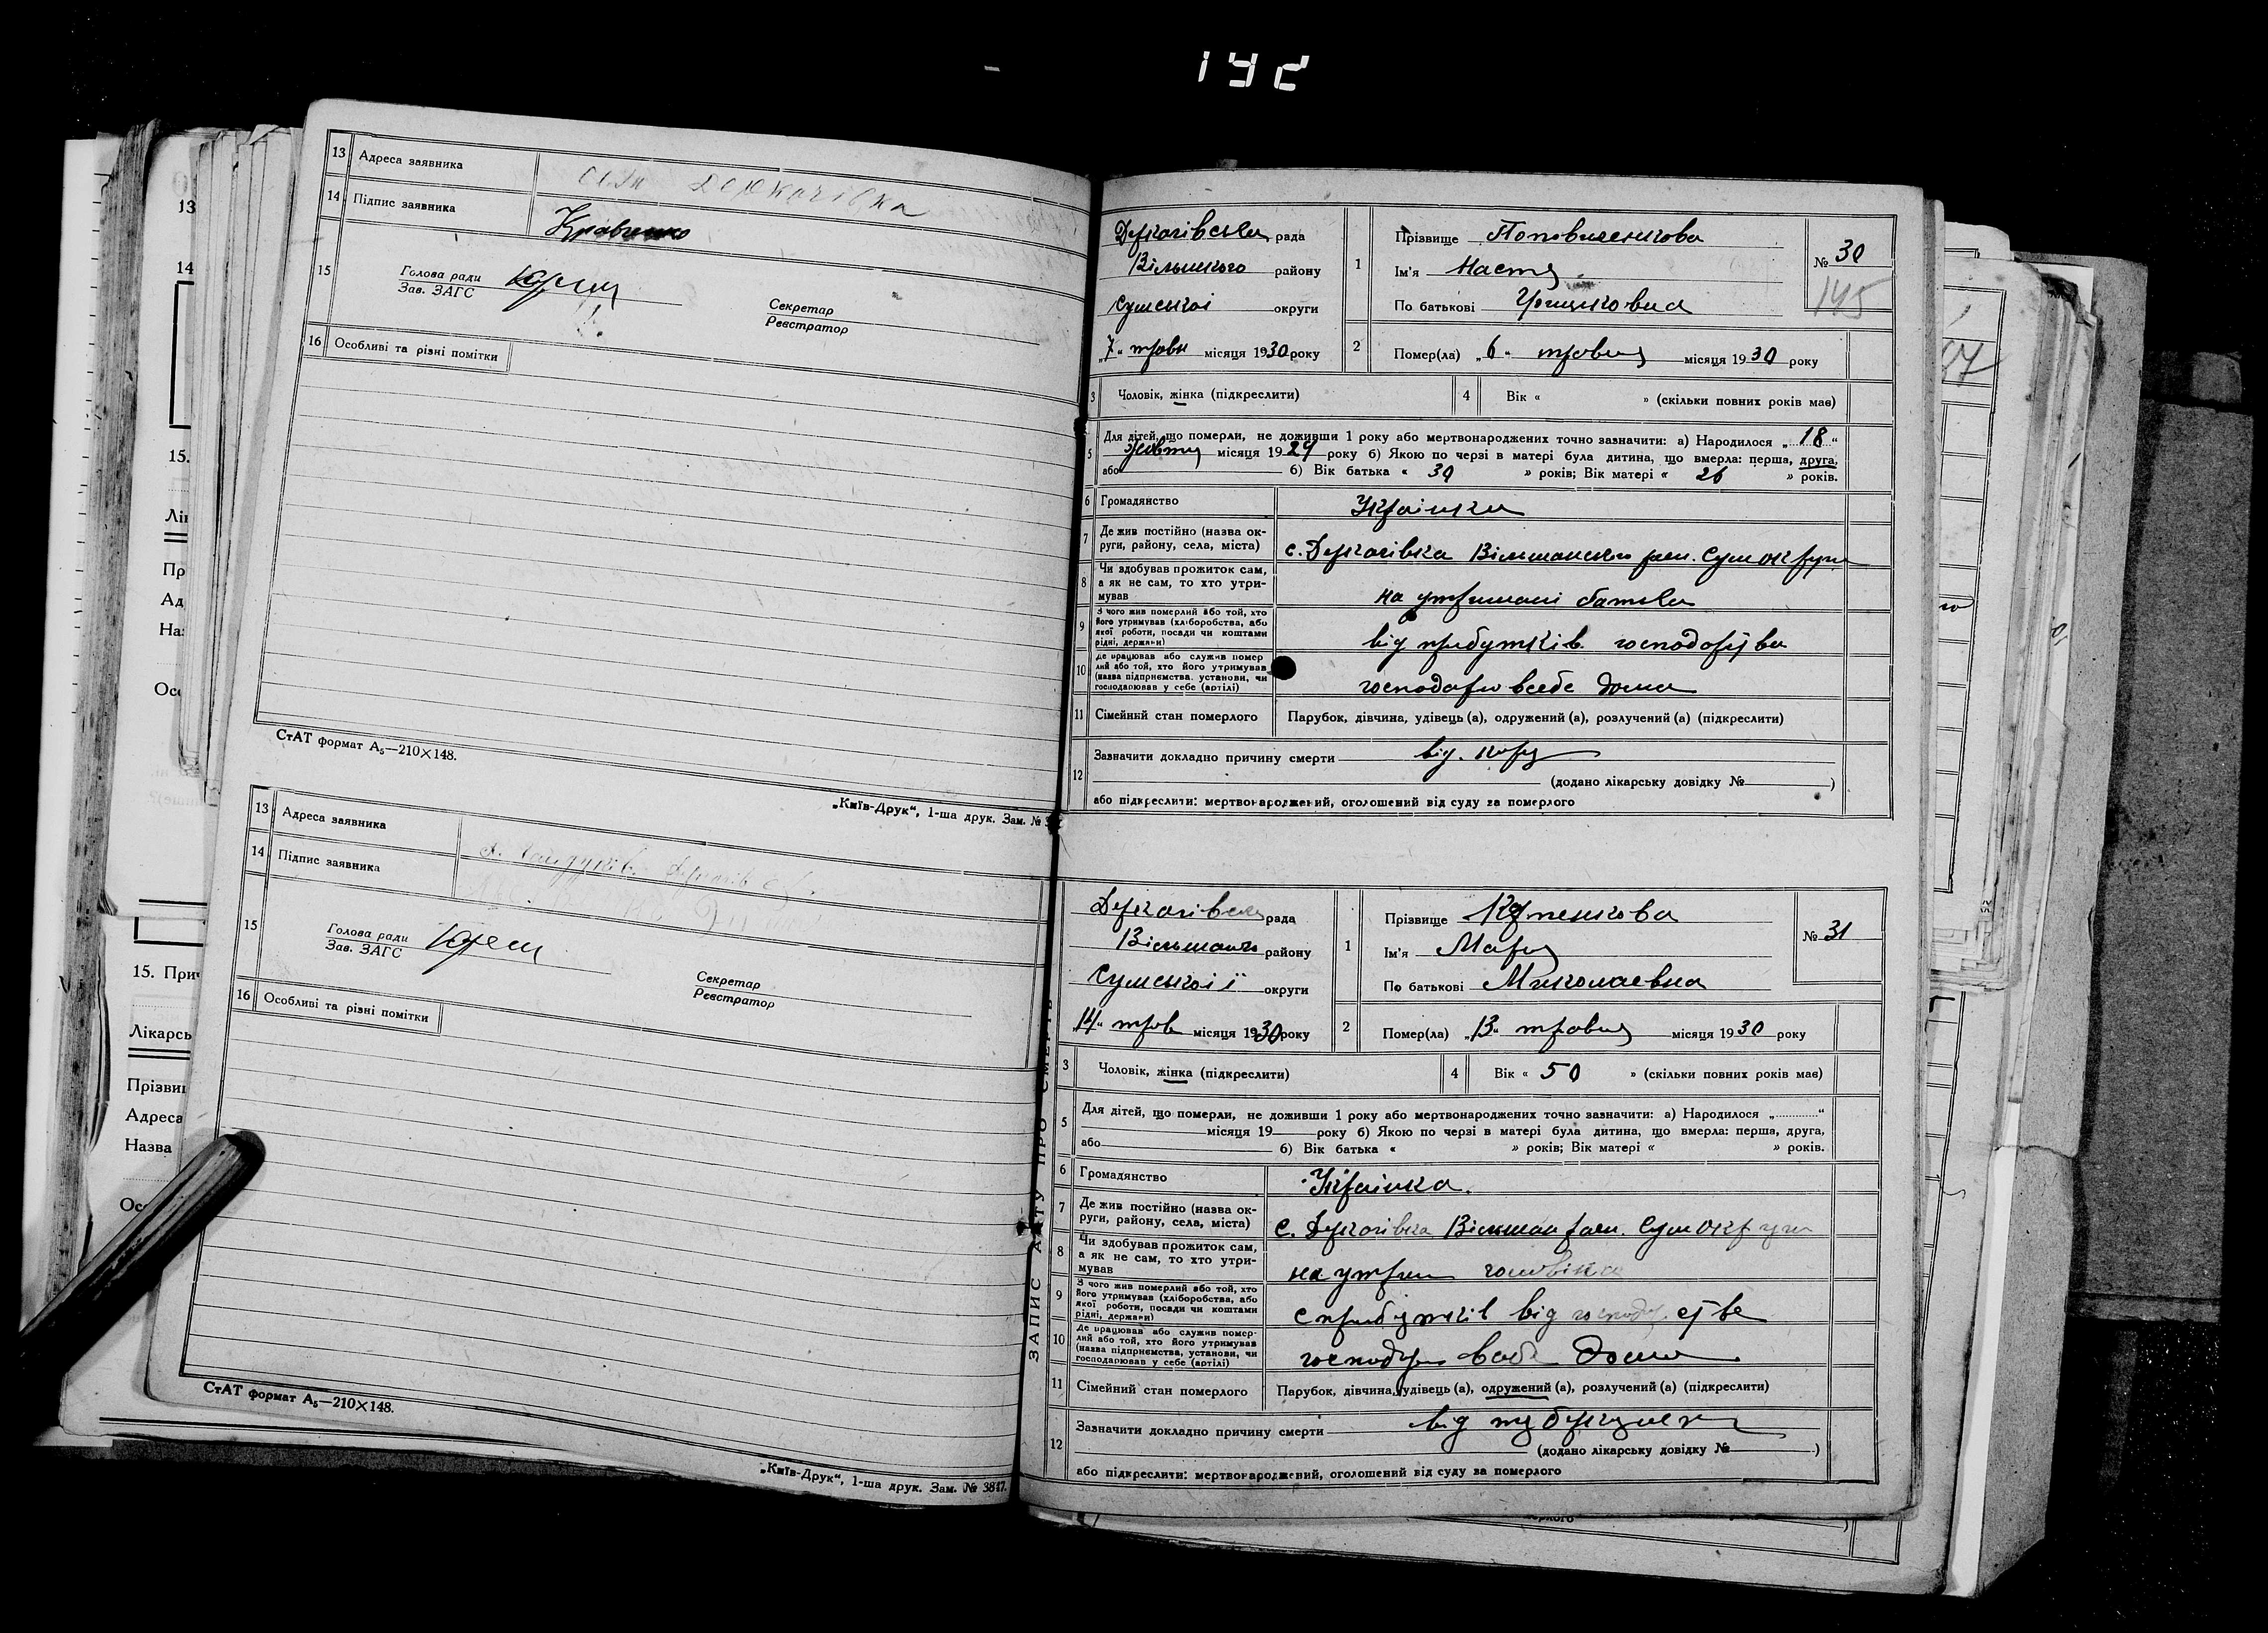 142
13 Адреса заявника
14 Підпис заявника Кравченко
15 Голова ради
Зав. ЗАГС
Секретар
Реєстратор
16 Особливі та різні помітки
СтАТ формат А₅—210×148.
„Київ-Друк“, 1-ша друк. Зам. № 3
13 Адреса заявника
14 Підпис заявника
15 Голова ради
Зав. ЗАГС
Секретар
Реєстратор
16 Особливі та різні помітки
СтАТ формат А₅—210×148.
„Київ-Друк“, 1-ша друк. Зам. № 3847.
Деркачівська рада
району
Сумської округи
„7“ травн місяця 1930 року
1 Прізвище
Ім'я Настя
По батькові
№ 30
145
2 Помер(ла) „6“ травня місяця 1930 року
3 Чоловік, жінка (підкреслити)
4 Вік « » (скільки повних років має)
5 Для дітей, що померли, не доживши 1 року або мертвонароджених точно зазначити: а) Народилося „18“
жовтня місяця 1929 року б) Якою по черзі в матері була дитина, що вмерла: перша, друга,
або б) Вік батька « 30 » років; Вік матері « 26 » років.
6 Громадянство Українка
7 Де жив постійно (назва ок-
руги, району, села, міста) с. Деркачівка Вільшанського рай. Сум округи
8 Чи здобував прожиток сам,
а як не сам, то хто утри-
мував на утримані батька
9 З чого жив померлий або той, хто
його утримував (хліборобства, або
якої роботи, посади чи коштами
рідні, держави) від прибутків господарства
10 Де працював або служив помер
лий або той, хто його утримував
(назва підприємства, установи, чи
господарював у себе (артілі) господарю всебе дома
11 Сімейний стан померлого Парубок, дівчина, удівець (а), одружений (а), розлучений (а) (підкреслити)
12 Зазначити докладно причину смерти від кору
(додано лікарську довідку № )
або підкреслити: мертвонароджений, оголошений від суду за померлого
ЗАПИС АКТУ ПРО СМЕРТЬ
Деркачівська рада
району
Сумської округи
14 трав місяця 1930 року
1 Прізвище
Ім'я Марія
По батькові Миколаевна
№ 31
2 Помер(ла) „13“ травня місяця 1930 року
3 Чоловік, жінка (підкреслити)
4 Вік « 50 » (скільки повних років має)
5 Для дітей, що померли, не доживши 1 року або мертвонароджених точно зазначити: а) Народилося „ “
місяця 19 року б) Якою по черзі в матері була дитина, що вмерла: перша, друга,
або б) Вік батька « » років; Вік матері « » років.
6 Громадянство Українка
7 Де жив постійно (назва ок-
руги, району, села, міста) с. Деркачівка Вільшан рай. Сум округи
8 Чи здобував прожиток сам,
а як не сам, то хто утри-
мував на утрим чоловіка
9 З чого жив померлий або той, хто
його утримував (хліборобства, або
якої роботи, посади чи коштами
рідні, держави) с прибутків від
10 Де працював або служив помер-
лий або той, хто його утримував
(назва підприємства, установи, чи
господарював у себе (артілі) дома
11 Сімейний стан померлого Парубок, дівчина, удівець (а), одружений (а), розлучений (а) (підкреслити)
12 Зазначити докладно причину смерти від
(додано лікарську довідку № )
або підкреслити: мертвонароджений, оголошений від суду за померлого